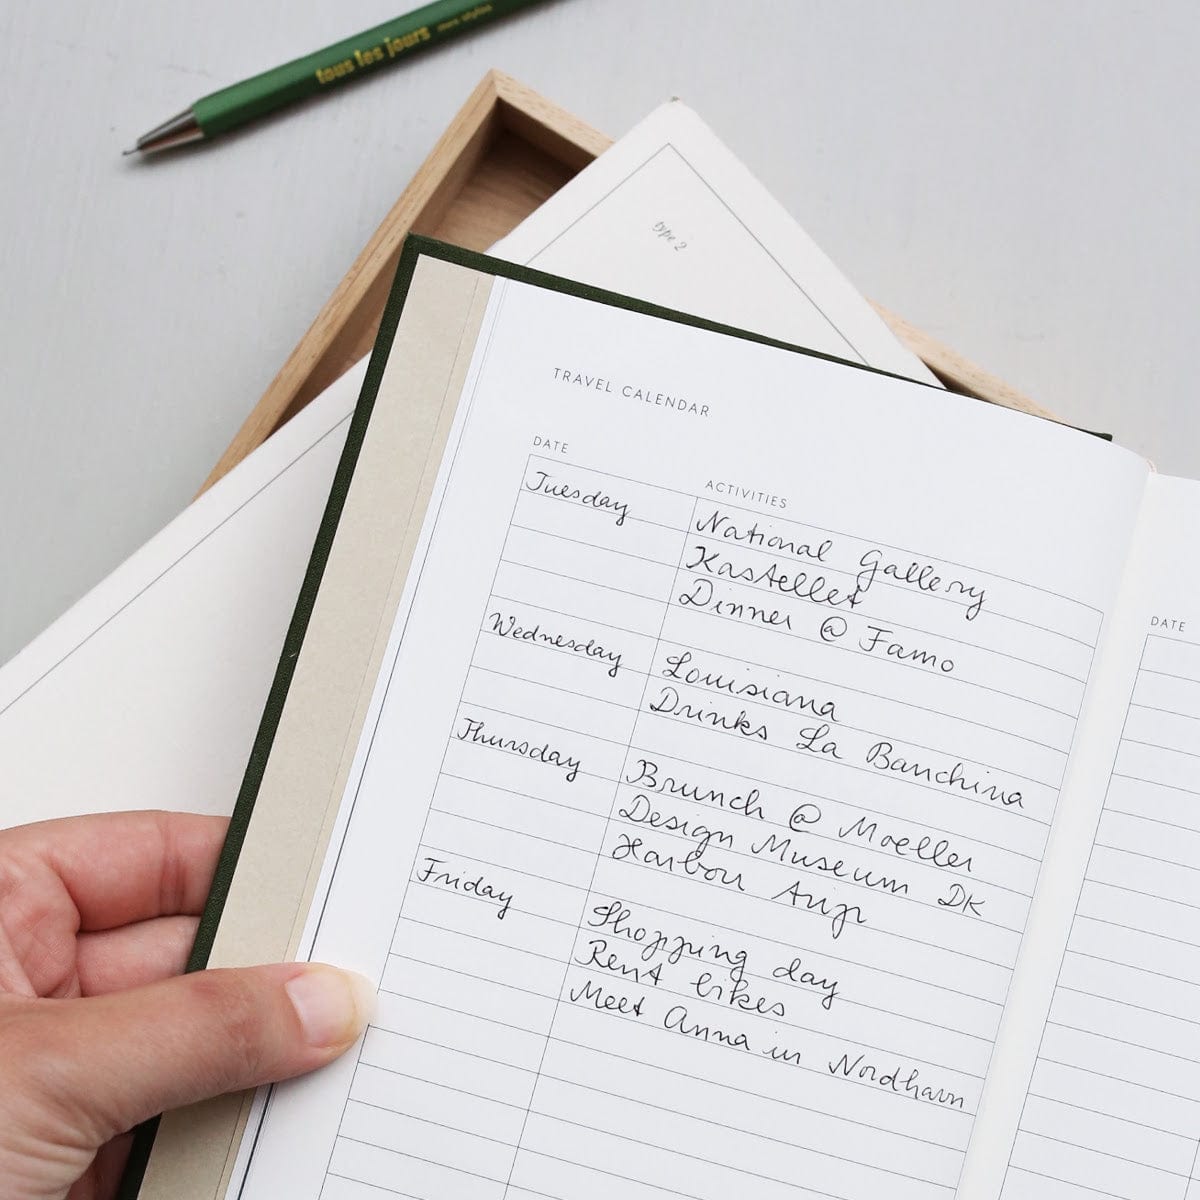 tous les jours
type 2
TRAVEL CALENDAR
DATE ACTIVITIES
Tuesday National Gallery
Kastellet
Dinner @ Famo
Wednesday Louisiana
Drinks La Banchina
Thursday Brunch @ Moeller
Design Museum DK
Harbour
Friday Shopping day
Rent bikes
Meet Anna in Nordhavn
DATE